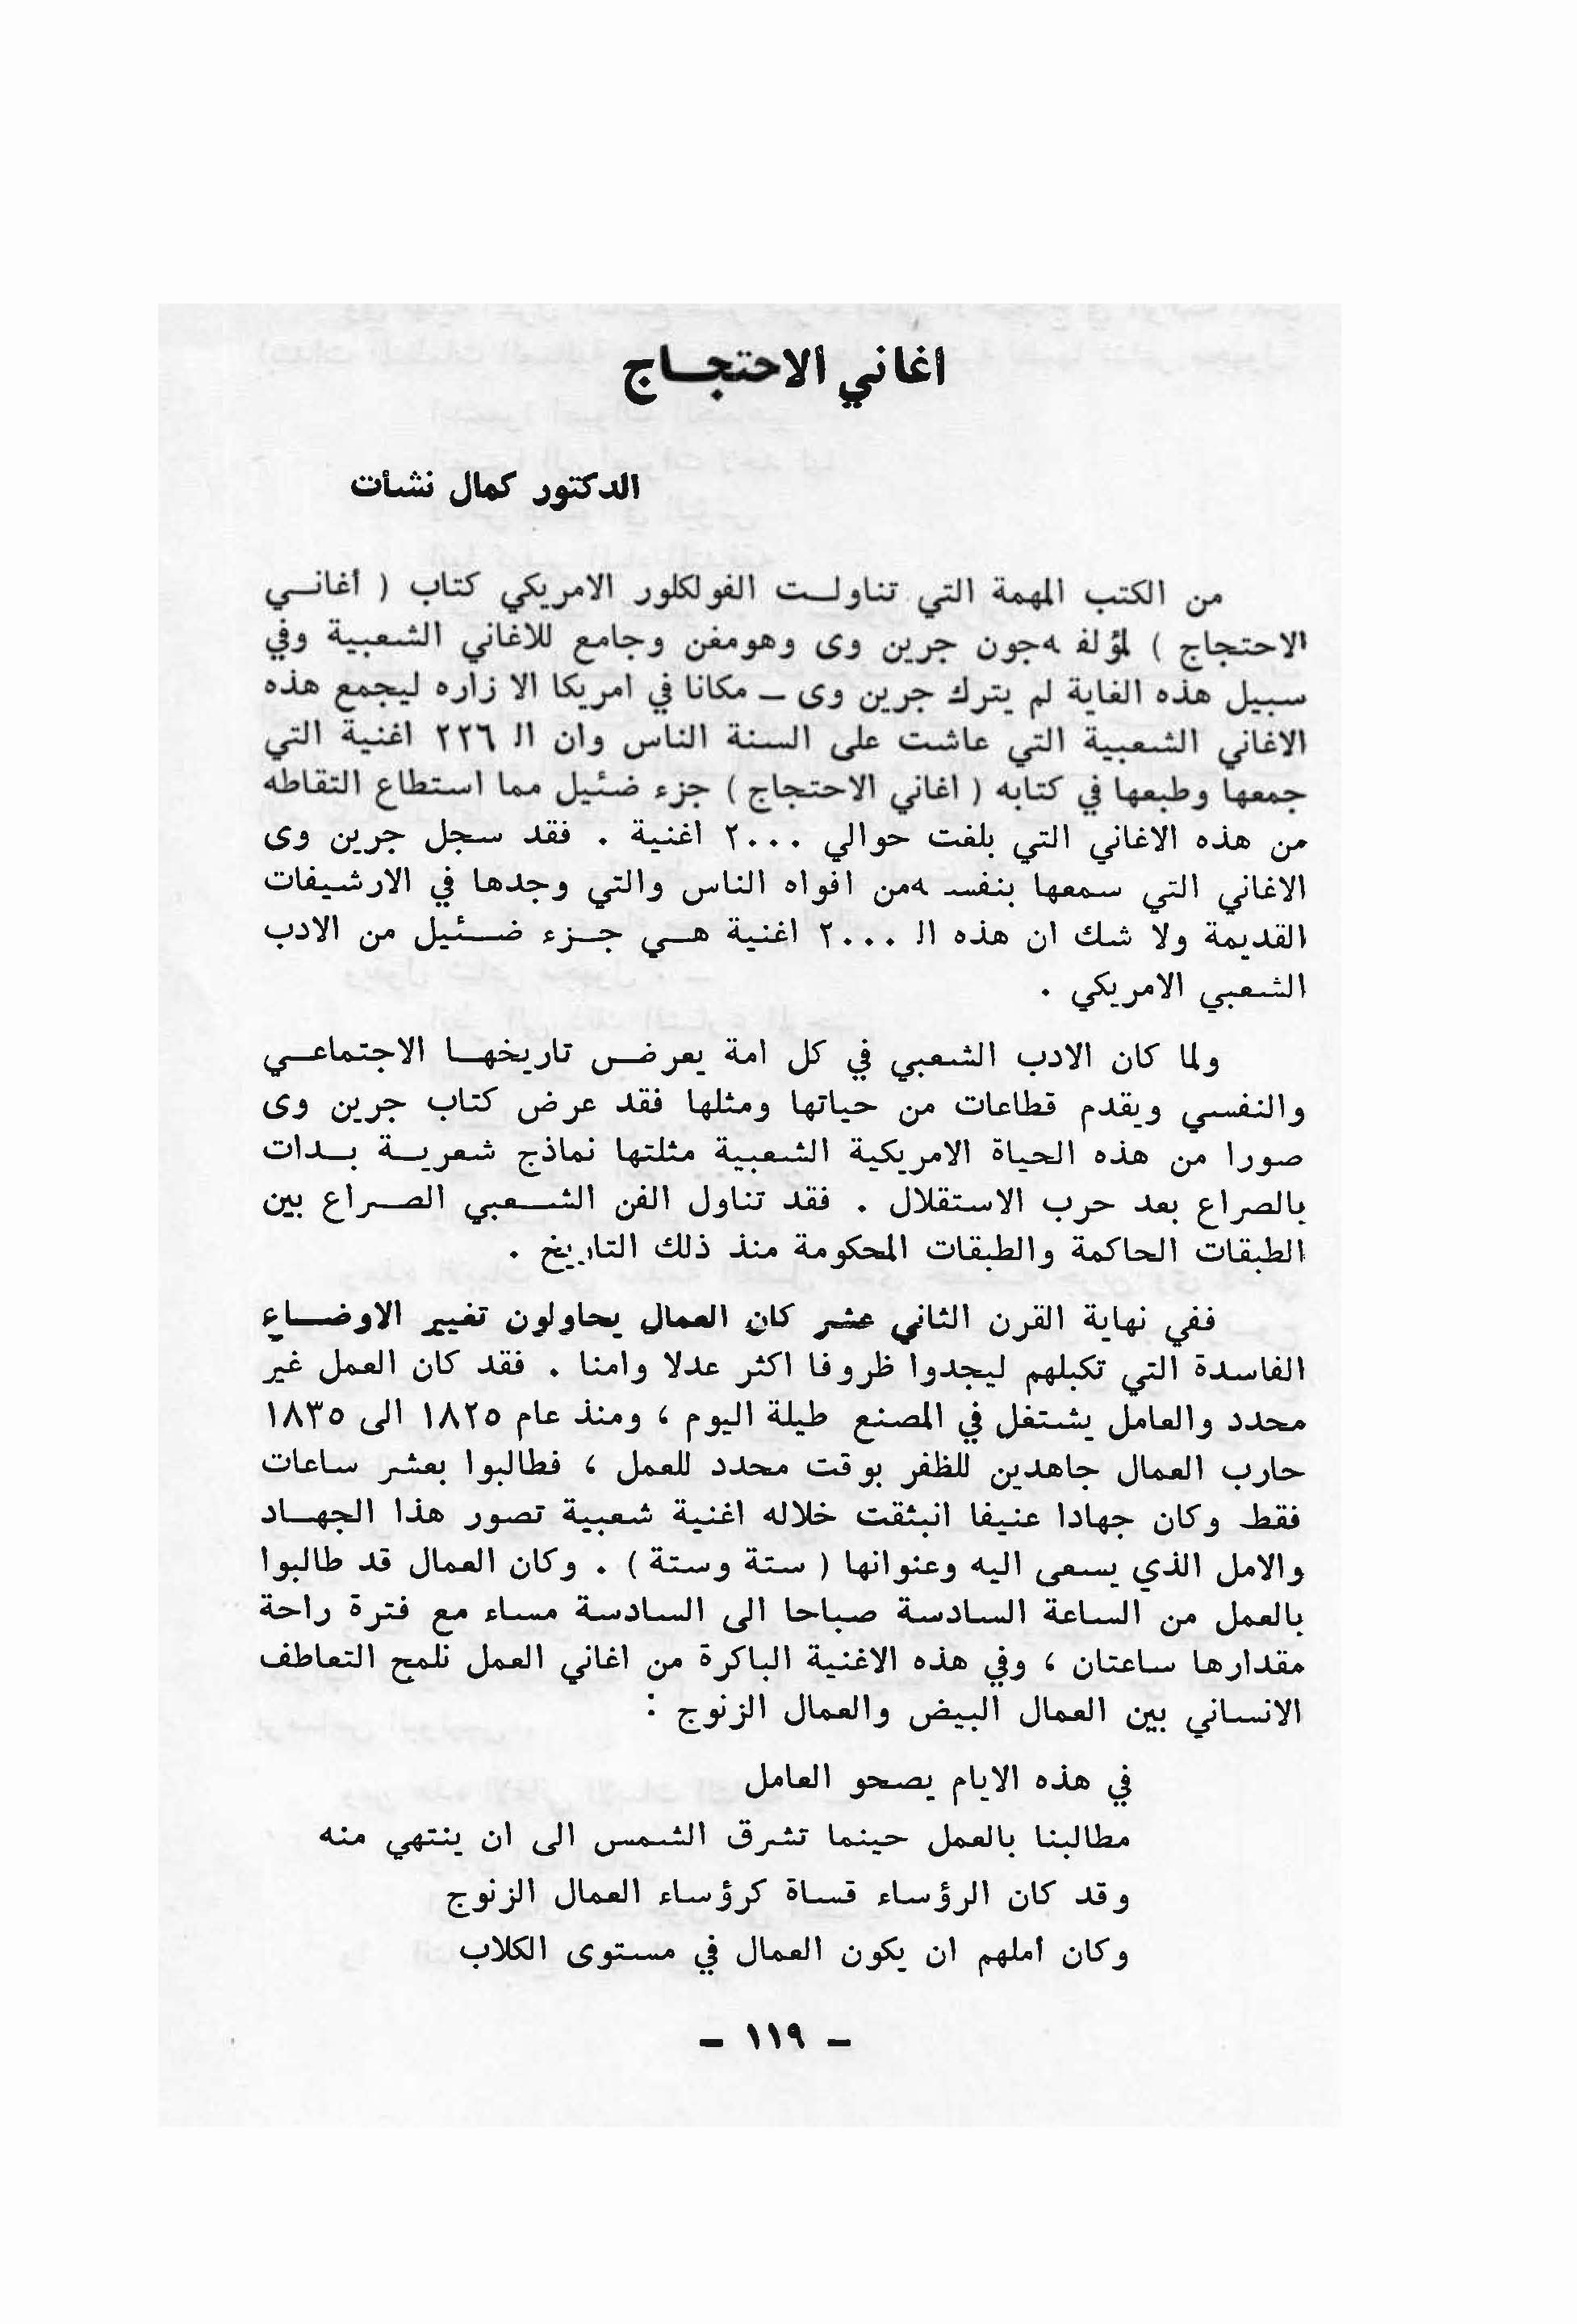 اغاني الاحتجـاج
الدكتور كمال نشأت
من الكتب المهمة التي تناولـت الفولكلور الامريكي كتاب ( أغانـي
الاحتجاج ) لمؤلفه جون جرين وى وهومغن وجامع للاغاني الشعبية وفي
سبيل هذه الغاية لم يترك جرين وى ــ مكانا في امريكا الا زاره ليجمع هذه
الاغاني الشعبية التي عاشت على السنة الناس وان الـ ٢٢٦ اغنية التي
جمعها وطبعها في كتابه ( اغاني الاحتجاج ) جزء ضئيل مما استطاع التقاطه
من هذه الاغاني التي بلغت حوالي ٢٠٠٠ اغنية . فقد سجل جرين وى
الاغاني التي سمعها بنفسه من افواه الناس والتي وجدها في الارشيفات
القديمة ولا شك ان هذه الـ ٢٠٠٠ اغنية هـي جـزء ضـئيل من الادب
الشعبي الامريكي .
ولما كان الادب الشعبي في كل امة يعرض تاريخهـا الاجتماعـي
والنفسي ويقدم قطاعات من حياتها ومثلها فقد عرض كتاب جرين وى
صورا من هذه الحياة الامريكية الشعبية مثلتها نماذج شعريـة بـدات
بالصراع بعد حرب الاستقلال . فقد تناول الفن الشـعبي الصـراع بين
الطبقات الحاكمة والطبقات المحكومة منذ ذلك التاريخ .
ففي نهاية القرن الثاني عشر كان العمال يحاولون تغيير الاوضـاع
الفاسدة التي تكبلهم ليجدوا ظروفا اكثر عدلا وامنا . فقد كان العمل غير
محدد والعامل يشتغل في المصنع طيلة اليوم ، ومنذ عام ١٨٢٥ الى ١٨٣٥
حارب العمال جاهدين للظفر بوقت محدد للعمل ، فطالبوا بعشر ساعات
فقط وكان جهادا عنيفا انبثقت خلاله اغنية شعبية تصور هذا الجهـاد
والامل الذي يسعى اليه وعنوانها ( ستة وستة ) . وكان العمال قد طالبوا
بالعمل من الساعة السادسة صباحا الى السادسة مساء مع فترة راحة
مقدارها ساعتان ، وفي هذه الاغنية الباكرة من اغاني العمل نلمح التعاطف
الانساني بين العمال البيض والعمال الزنوج :
في هذه الايام يصحو العامل
مطالبنا بالعمل حينما تشرق الشمس الى ان ينتهي منه
وقد كان الرؤساء قساة كرؤساء العمال الزنوج
وكان أملهم ان يكون العمال في مستوى الكلاب
– ١١٩ –